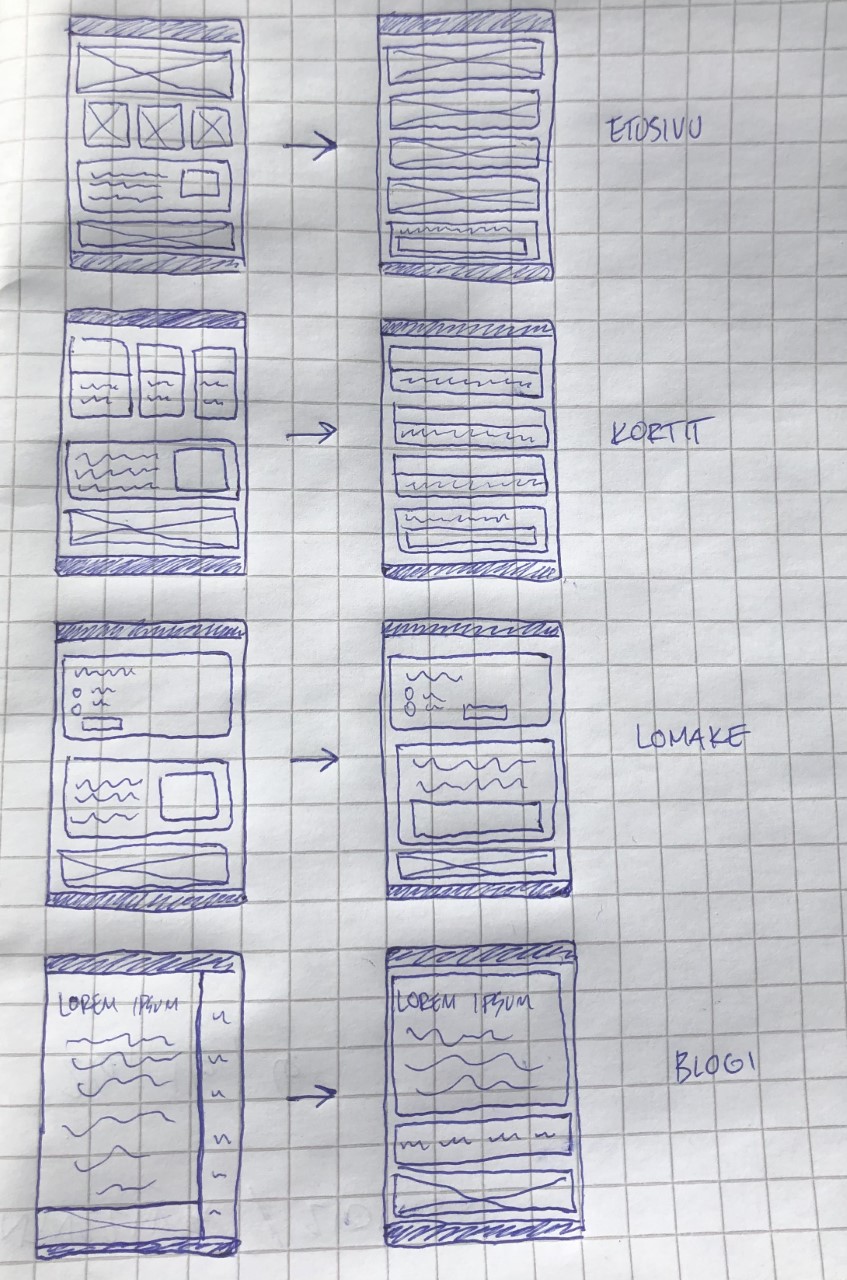 ETUSIVU
KORTIT
LOMAKE
LOREM IPSUM
LOREM IPSUM
BLOGI